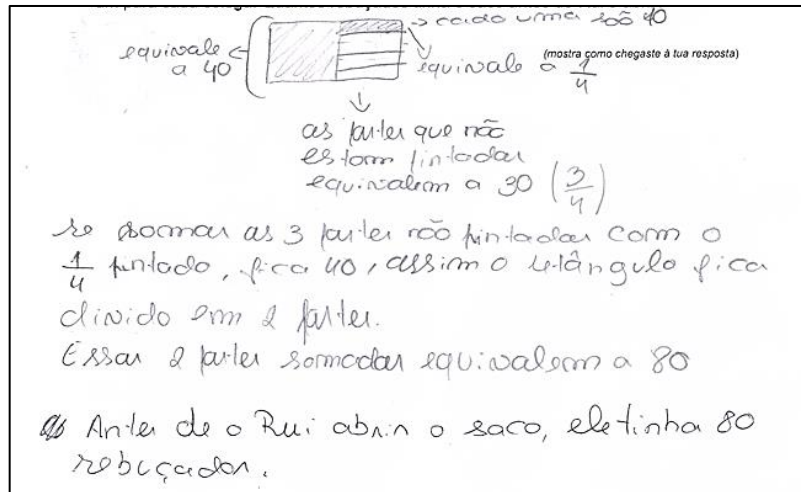 → cada uma são 10
equivale a 40
equivale a 1/4
(mostra como chegaste à tua resposta)
as partes que não
estam pintadas
equivalem a 30 (3/4)
se somar as 3 partes não pintadas com o
1/4 pintado, fica 40, assim o retângulo fica
divido em 2 partes.
Essas 2 partes somadas equivalem a 80
Antes de o Rui abrir o saco, ele tinha 80
rebuçados.